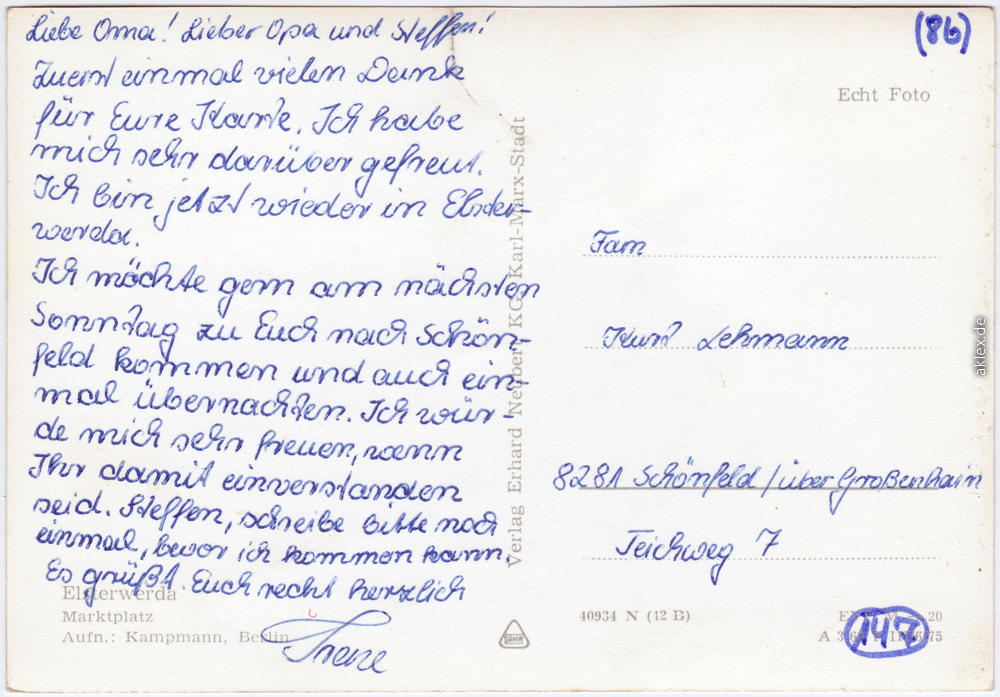 Liebe Oma! Lieber Opa und Steffen!
Zuerst einmal vielen Dank
für Eure Karte. Ich habe
mich sehr darüber gefreut.
Ich bin jetzt wieder in Elster-
werda.
Ich möchte gern am nächsten
Sonntag zu Euch nach Schön-
feld kommen und auch ein-
mal übernachten. Ich wür-
de mich sehr freuen, wenn
Ihr damit einverstanden
seid. Steffen, schreibe bitte noch
einmal, bevor ich kommen kann.
Es grüßt Euch recht herzlich
Elsterwerda
Marktplatz
Aufn.: Kampmann, Berlin
Verlag Erhard Neubert KG Karl-Marx-Stadt
(86)
Echt Foto
Fam
Kurt Lehmann
8281 Schönfeld / über Großenhain
Teichweg 7
40934 N (12 B)
20
A 3 75
147
aklex.de